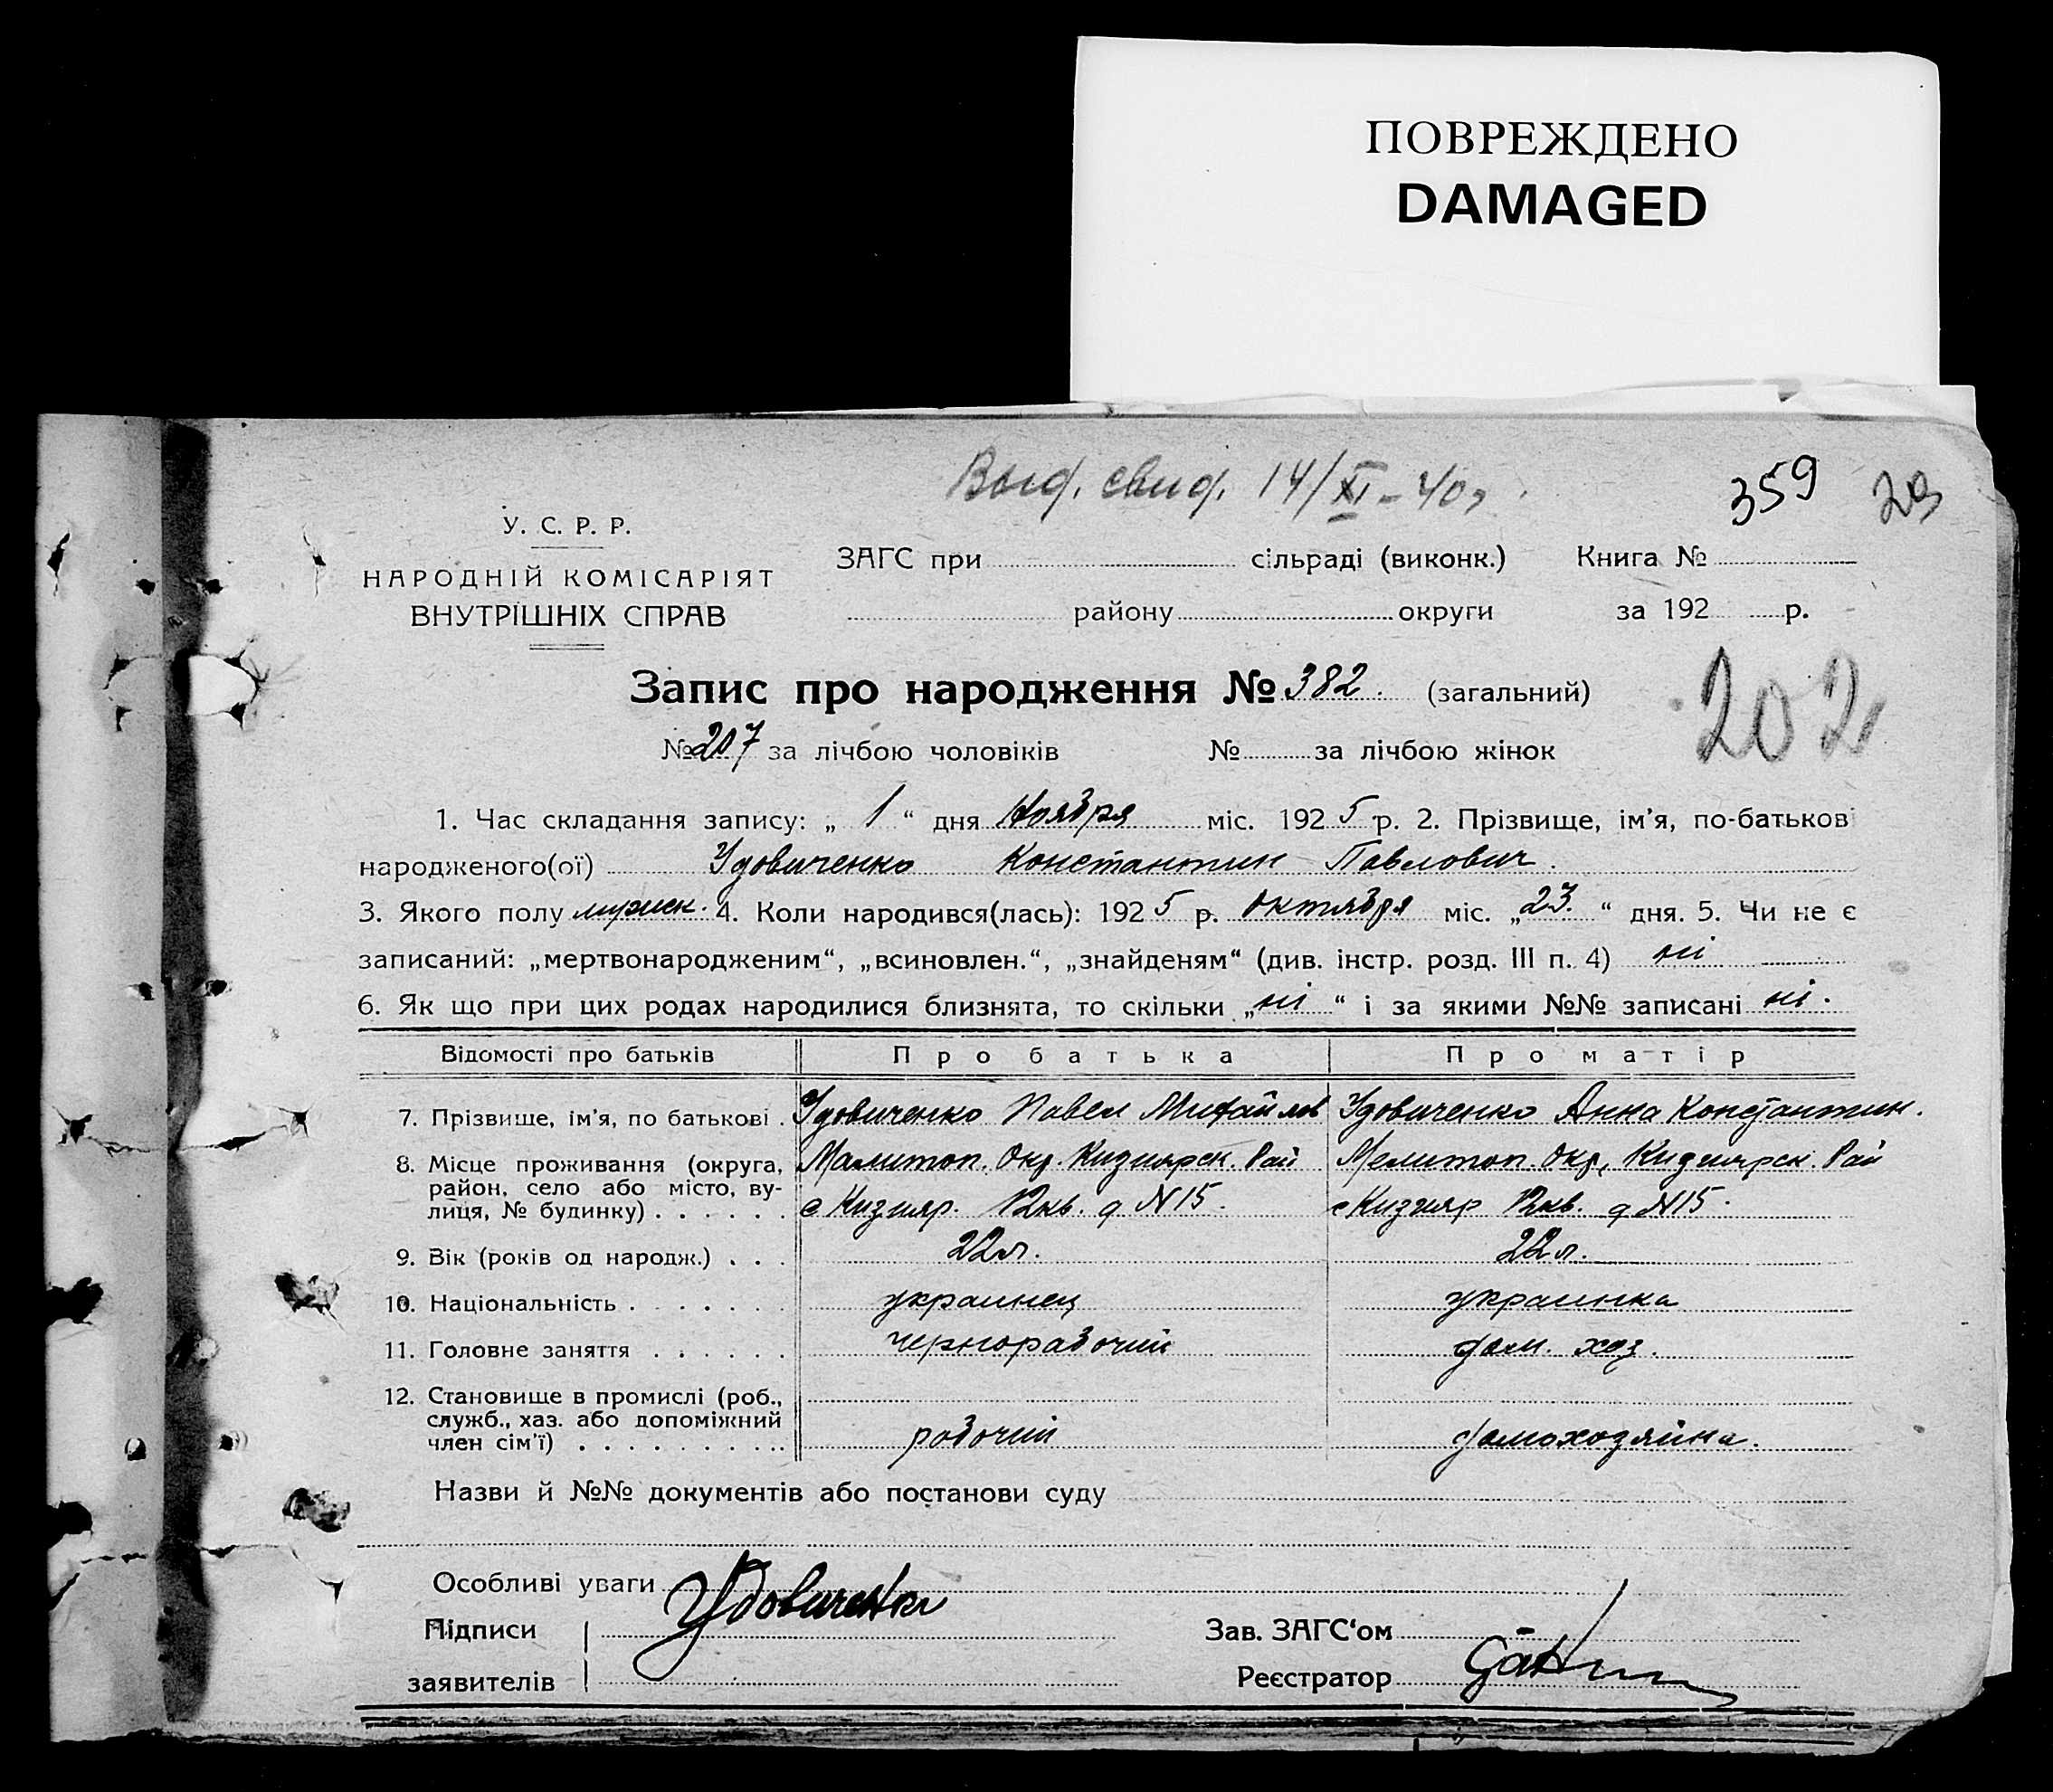 ПОВРЕЖДЕНО
DAMAGED
Выд. свид. 14/XI-40г.
359
У. С. Р. Р.
НАРОДНІЙ КОМІСАРІЯТ
ВНУТРІШНІХ СПРАВ
ЗАГС при сільраді (виконк.) Книга №
району округи за 192 р.
Запис про народження № 382. (загальний)
202
№ 207 за лічбою чоловіків № за лічбою жінок
1. Час складання запису: „ 1 “ дня Ноября міс. 192 5 р. 2. Прізвище, ім’я, по-батькові
народженого(ої) Удовиченко Константин Павлович.
3. Якого полу мужск. 4. Коли народився(лась): 192 5 р. октября міс. „ 23. “ дня. 5. Чи не є
записаний: „мертвонародженим“, „всиновлен.“, „знайденям“ (див. інстр. розд. III п. 4) ні
6. Як що при цих родах народилися близнята, то скільки „ ні “ і за якими №№ записані ні.
Відомості про батьків Про батька Про матір
7. Прізвище, ім’я, по батькові . Удовиченко Павел Михайлов Удовиченко Анна Константин.
8. Місце проживання (округа, Мелитоп. Окр. Кизиярск. Рай Мелитоп. Окр, Кизиярск. Рай
район, село або місто, ву-
лиця, № будинку) . . . . . . с Кизияр. 12кв. д N15. с Кизияр 12кв. д N15.
9. Вік (років од народж.) . . . 22 л. 22 л.
10. Національність . . . . . . . украинец украинка
11. Головне заняття . . . . . . чернорабочий дом. хоз.
12. Становище в промислі (роб.,
служб., хаз. або допоміжний
член сім’ї) . . . . . . . . . . рабочий домохозяйка.
Назви й №№ документів або постанови суду
Особливі уваги
Підписи Удовиченко Зав. ЗАГС‘ом
заявителів Реєстратор